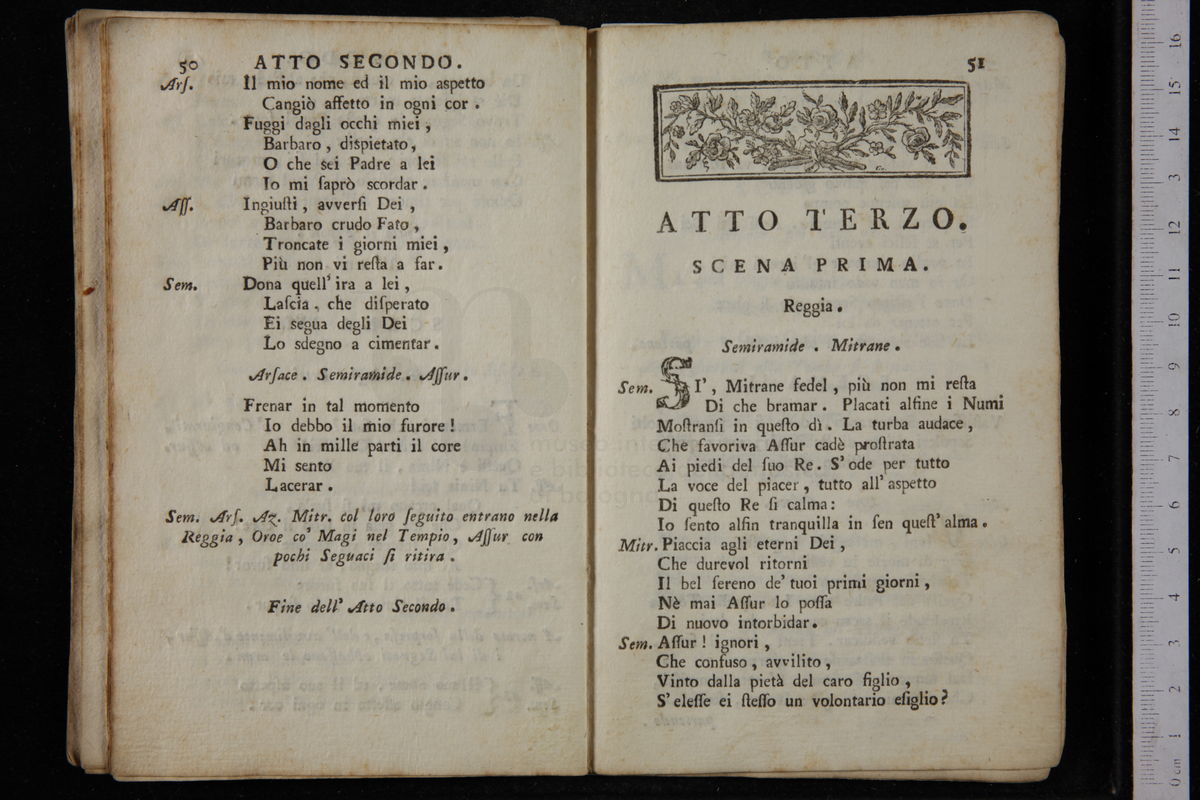 50 ATTO SECONDO.
Arſ. Il mio nome ed il mio aspetto
Cangiò affetto in ogni cor .
Fuggi dagli occhi miei ,
Barbaro , dispietato ,
O che sei Padre a lei
Io mi ſaprò scordar .
Aſſ. Ingiuſti , avverſi Dei ,
Barbaro crudo Fato ,
Troncate i giorni miei ,
Più non vi reſta a far .
Sem. Dona quell' ira a lei ,
Laſcia , che diſperato
Ei segua degli Dei
Lo sdegno a cimentar .
Arſace . Semiramide . Aſſur .
Frenar in tal momento
Io debbo il mio furore !
Ah in mille parti il core
Mi sento
Lacerar .
Sem. Arſ. Az. Mitr. col loro ſeguito entrano nella
Reggia , Oroe co' Magi nel Tempio , Aſſur con
pochi Seguaci ſi ritira .
Fine dell' Atto Secondo .
51
ATTO TERZO.
SCENA PRIMA.
Reggia .
Semiramide . Mitrane .
Sem. SI' , Mitrane fedel , più non mi reſta
Di che bramar . Placati alfine i Numi
Moſtranſi in queſto dì . La turba audace ,
Che favoriva Aſſur cadè proſtrata
Ai piedi del ſuo Re . S' ode per tutto
La voce del piacer , tutto all' aspetto
Di queſto Re ſi calma :
Io ſento alfin tranquilla in ſen queſt' alma .
Mitr. Piaccia agli eterni Dei ,
Che durevol ritorni
Il bel ſereno de' tuoi primi giorni ,
Nè mai Aſſur lo poſſa
Di nuovo intorbidar .
Sem. Aſſur ! ignori ,
Che confuso , avvilito ,
Vinto dalla pietà del caro figlio ,
S' eleſſe ei ſteſſo un volontario eſiglio ?